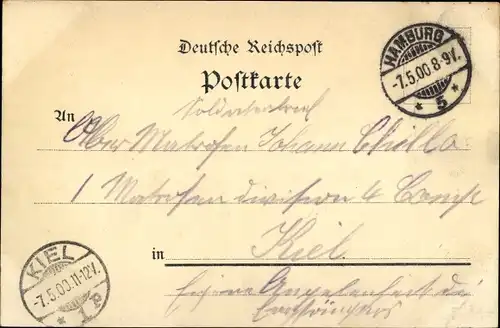 Deutsche Reichspost
Postkarte
HAMBURG
-7.5.00.8-9V.
* 5 *
Soldatenbrief
An Ober Matrosen Johann
1 Matrosen division 4 Comp
in Kiel
Eigene Angelegenheit des
Empfängers
KIEL
-7.5.00.11-12V.
* 1 P